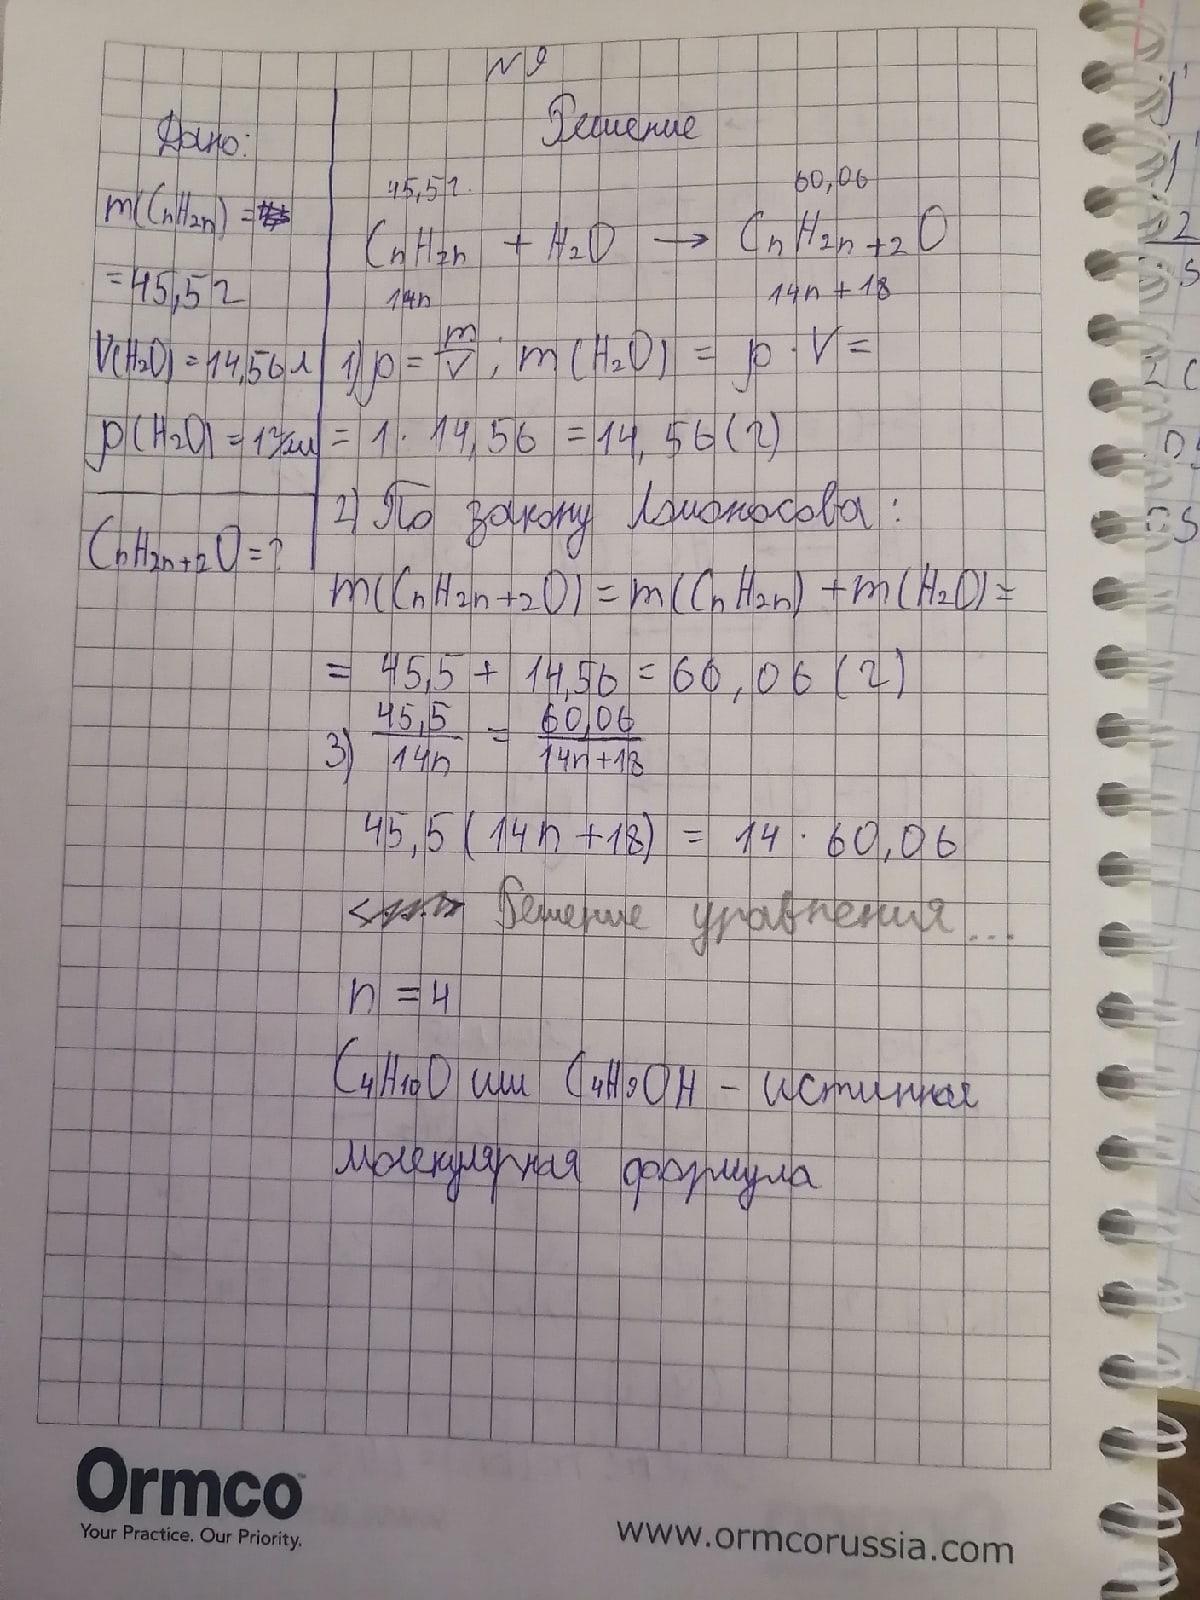 №9
Дано:
Решение
m(CnH2n) =
= 45,5 г
V(H2O) = 14,56 л
ρ(H2O) = 1 г/мл
CnH2n+2O = ?
45,5 г. 60,06
CnH2n + H2O → CnH2n+2O
14n 14n + 18
1) ρ = m/V ; m(H2O) = ρ · V =
= 1 · 14,56 = 14,56 (г)
2) По закону Ломоносова:
m(CnH2n+2O) = m(CnH2n) + m(H2O) =
= 45,5 + 14,56 = 60,06 (г)
3) 45,5/14n = 60,06/14n+18
45,5(14n + 18) = 14 · 60,06
Решение уравнения...
n = 4
C4H10O или C4H9OH – истинная
молекулярная формула
Ormco™
Your Practice. Our Priority.
www.ormcorussia.com